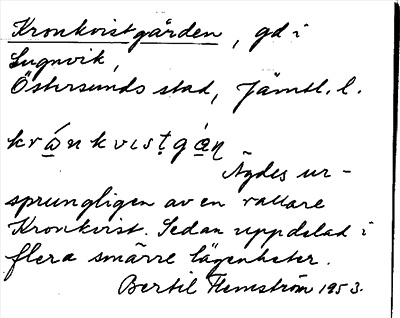 Kronkvistgården, gd i
Lugnvik,
Östersunds stad, Jämtl. l.
krånkvistgå̱n
Ägdes ur-
sprungligen av en rallare
Kronkvist. Sedan uppdelad i
flera smärre lägenheter.
Bertil Flemström 1953.